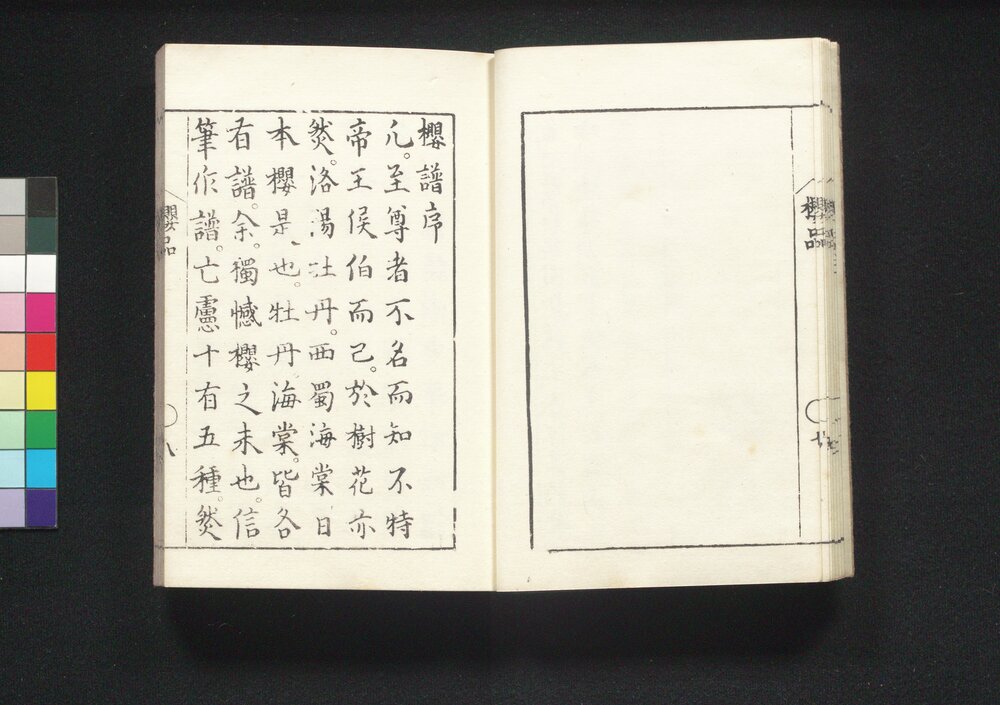 櫻譜序
凢。至尊者不名而知不特
帝王侯伯而已。於樹花亦
然。洛陽牡丹。西蜀海棠日
本櫻是也。牡丹海棠。皆各
有譜。余。獨憾櫻之未也。信
筆作譜。亡慮十有五種。然
櫻品
八
櫻品
七